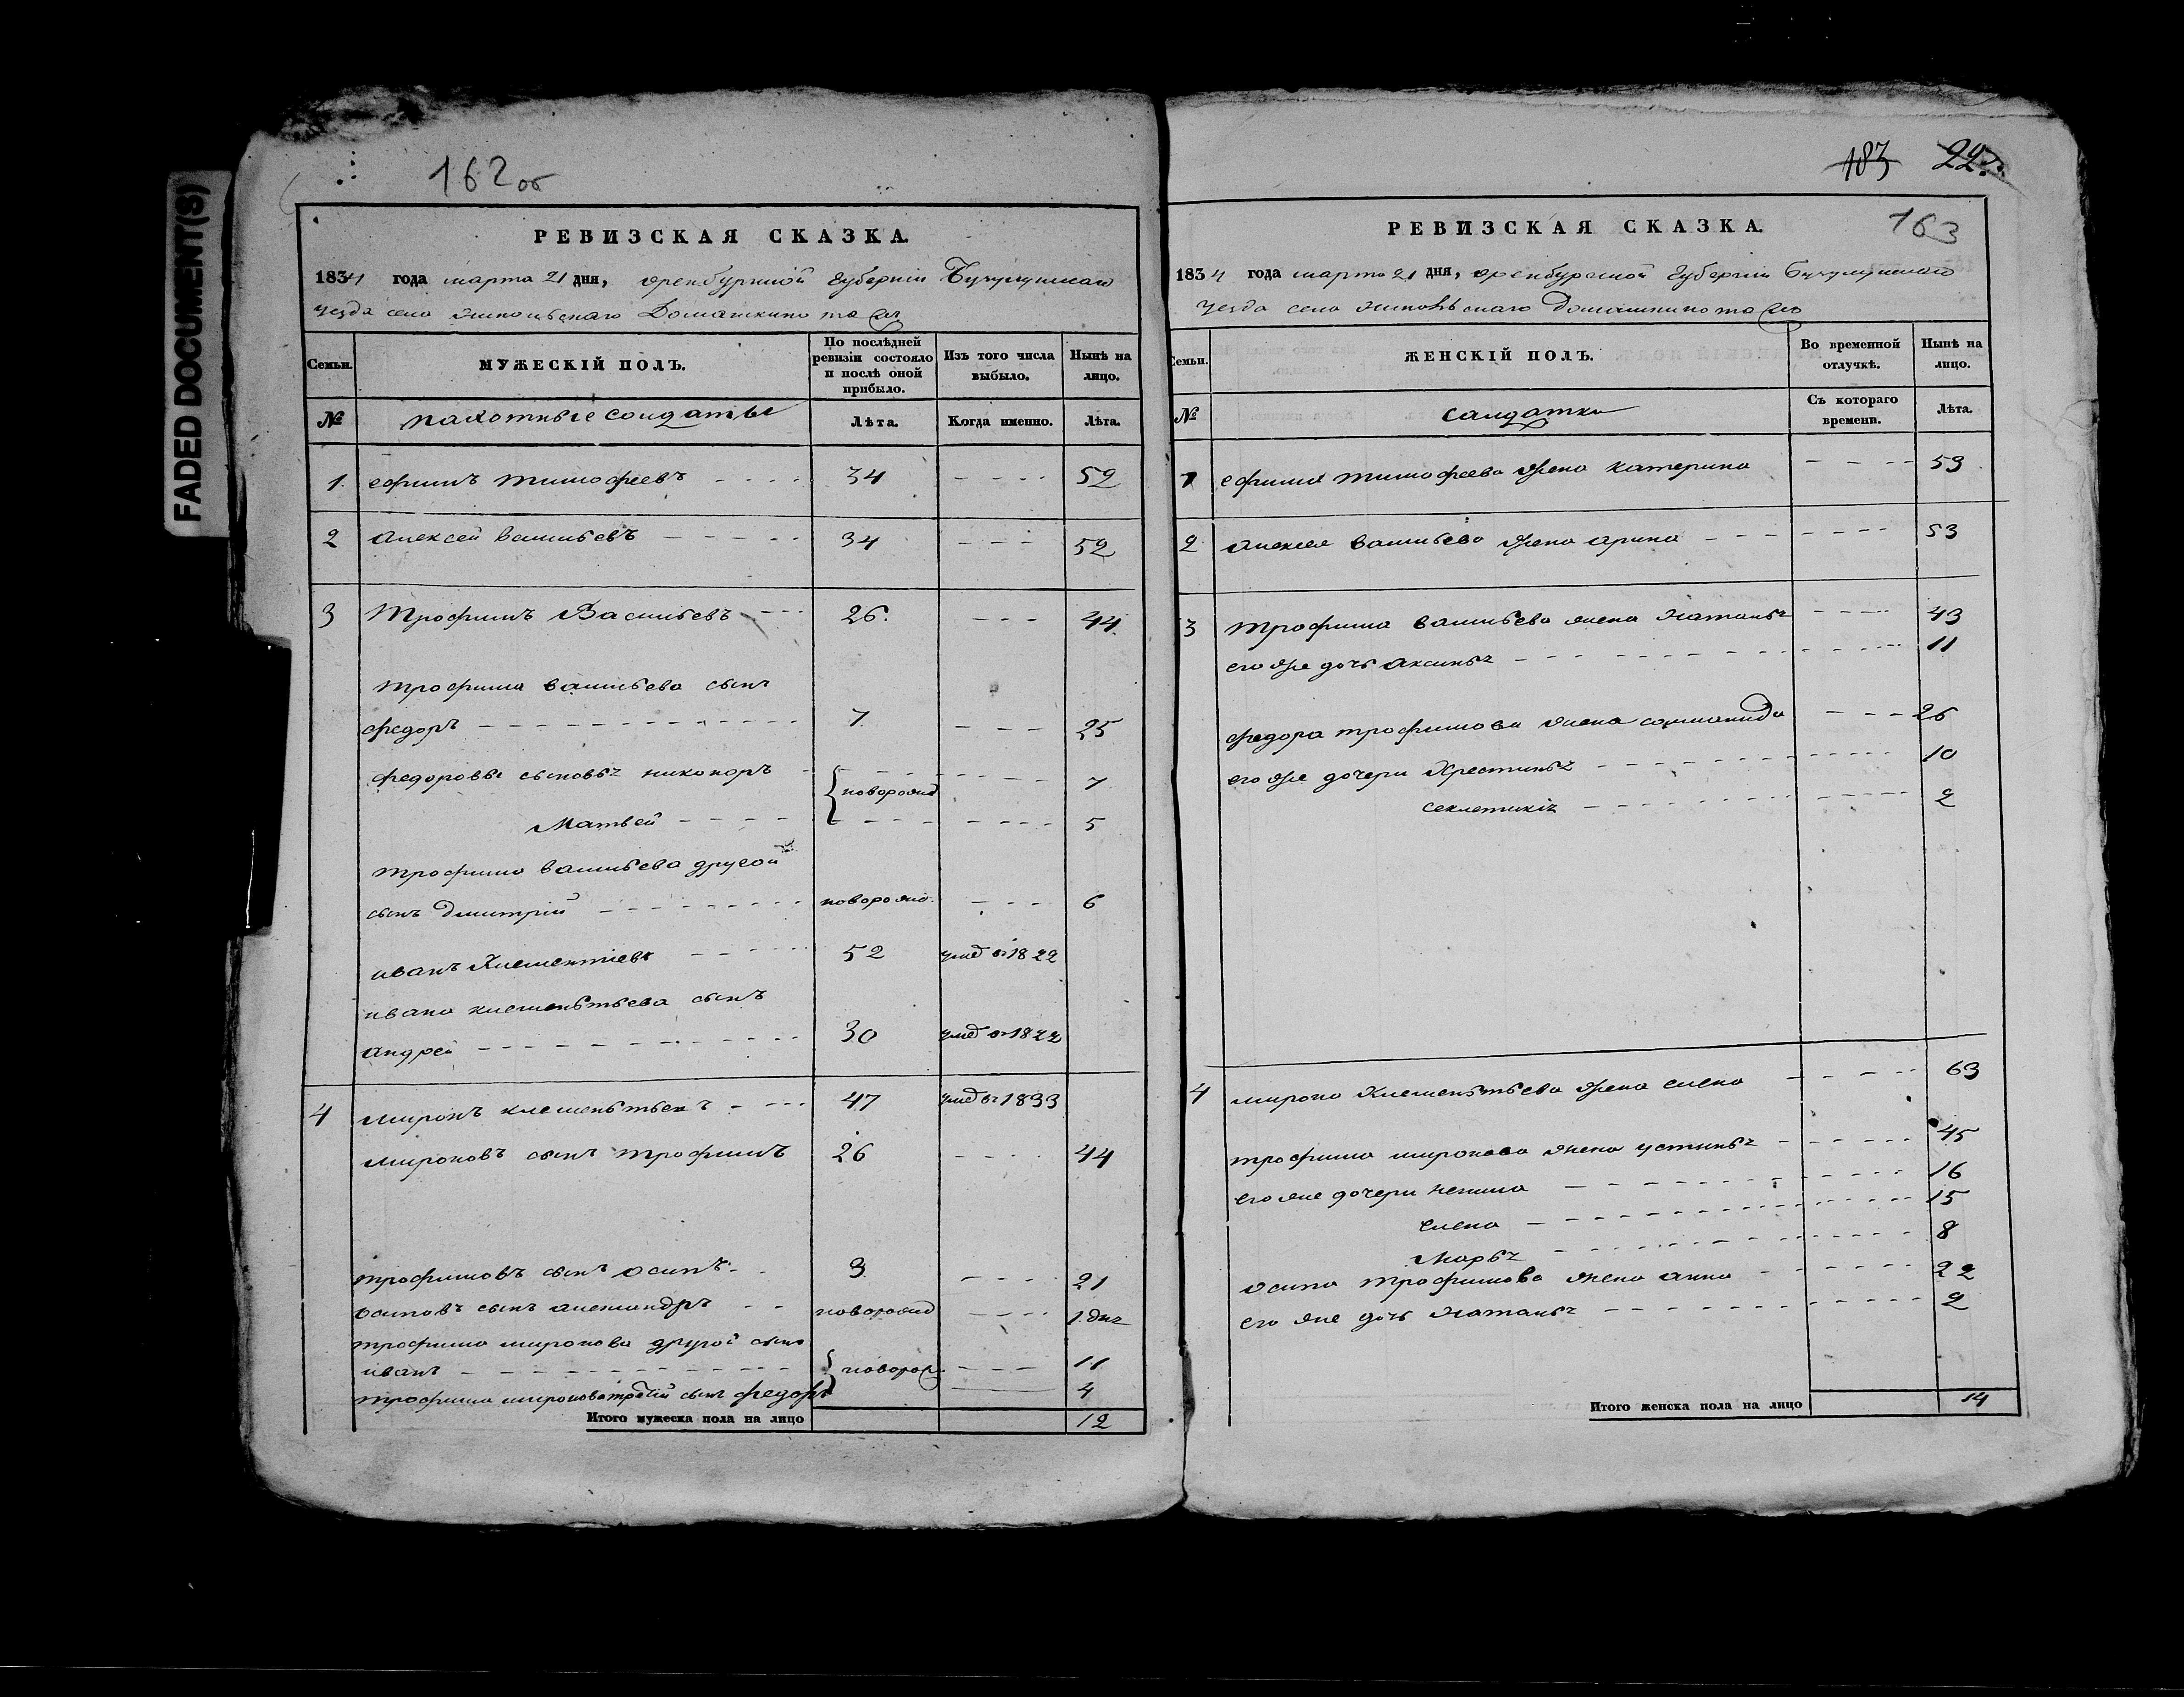 FADED DOCUMENT(S)
162 об
РЕВИЗСКАЯ СКАЗКА.
1834 года марта 21 дня, оренбурской губернии Бугурусланскаго
уезда села Домашкино то ж
Семьи. МУЖЕСКІЙ ПОЛЪ. По послѣдней ревизіи состояло и послѣ оной прибыло. Изъ того числа выбыло. Нынѣ на лицо.
№ пахотные солдаты Лѣта. Когда именно. Лѣта.
1. ефимъ тимофеевъ 34 52
2 алексей васильевъ 34 52
3 Трофимъ Васильевъ 26. 44.
трофима васильева сынъ
федоръ 7. 25
федоровы сыновья никоноръ новорожд 7
Матвей 5
трофима васильева другой
сынъ дмитрий новорожд. 6
иванъ Клементиевъ 52 умер въ 1822
ивана клеменьтьева сынъ
андрей 30 умер въ 1822
4 миронъ клеменьтьевъ 47 умер въ 1833
мироновъ сынъ трофимъ 26 44
трофимовъ сынъ осипъ 3 21
осиповъ сынъ александръ новорожд 1 дня
трофима миронова другой сынъ
иванъ новорож. 11
трофима миронова третий сынъ федоръ 4
Итого мужеска пола на лицо 12
183 22
163
РЕВИЗСКАЯ СКАЗКА.
1834 года марта 21 дня, оренбурской губернии Бугурусланскаго
уезда села Домашкино то ж
Семьи. ЖЕНСКІЙ ПОЛЪ. Во временной отлучкѣ. Нынѣ на лицо.
№ салдатки Съ котораго времени. Лѣта.
1 ефима тимофеева жена катерина 53
2 алексея васильева жена арина 53
3 трофима васильева жена наталья 43
его же дочь аксинья 11
федора трофимова жена соломанида 26
его же дочери Крестинья 10
секлетикия 2
4 мирона Клеменьтьева жена елена 63
трофима миронова жена устинья 45
его же дочери ненила 16
елена 15
Марья 8
осипа трофимова жена анна 22
его же дочь наталья 2
Итого женска пола на лицо 14